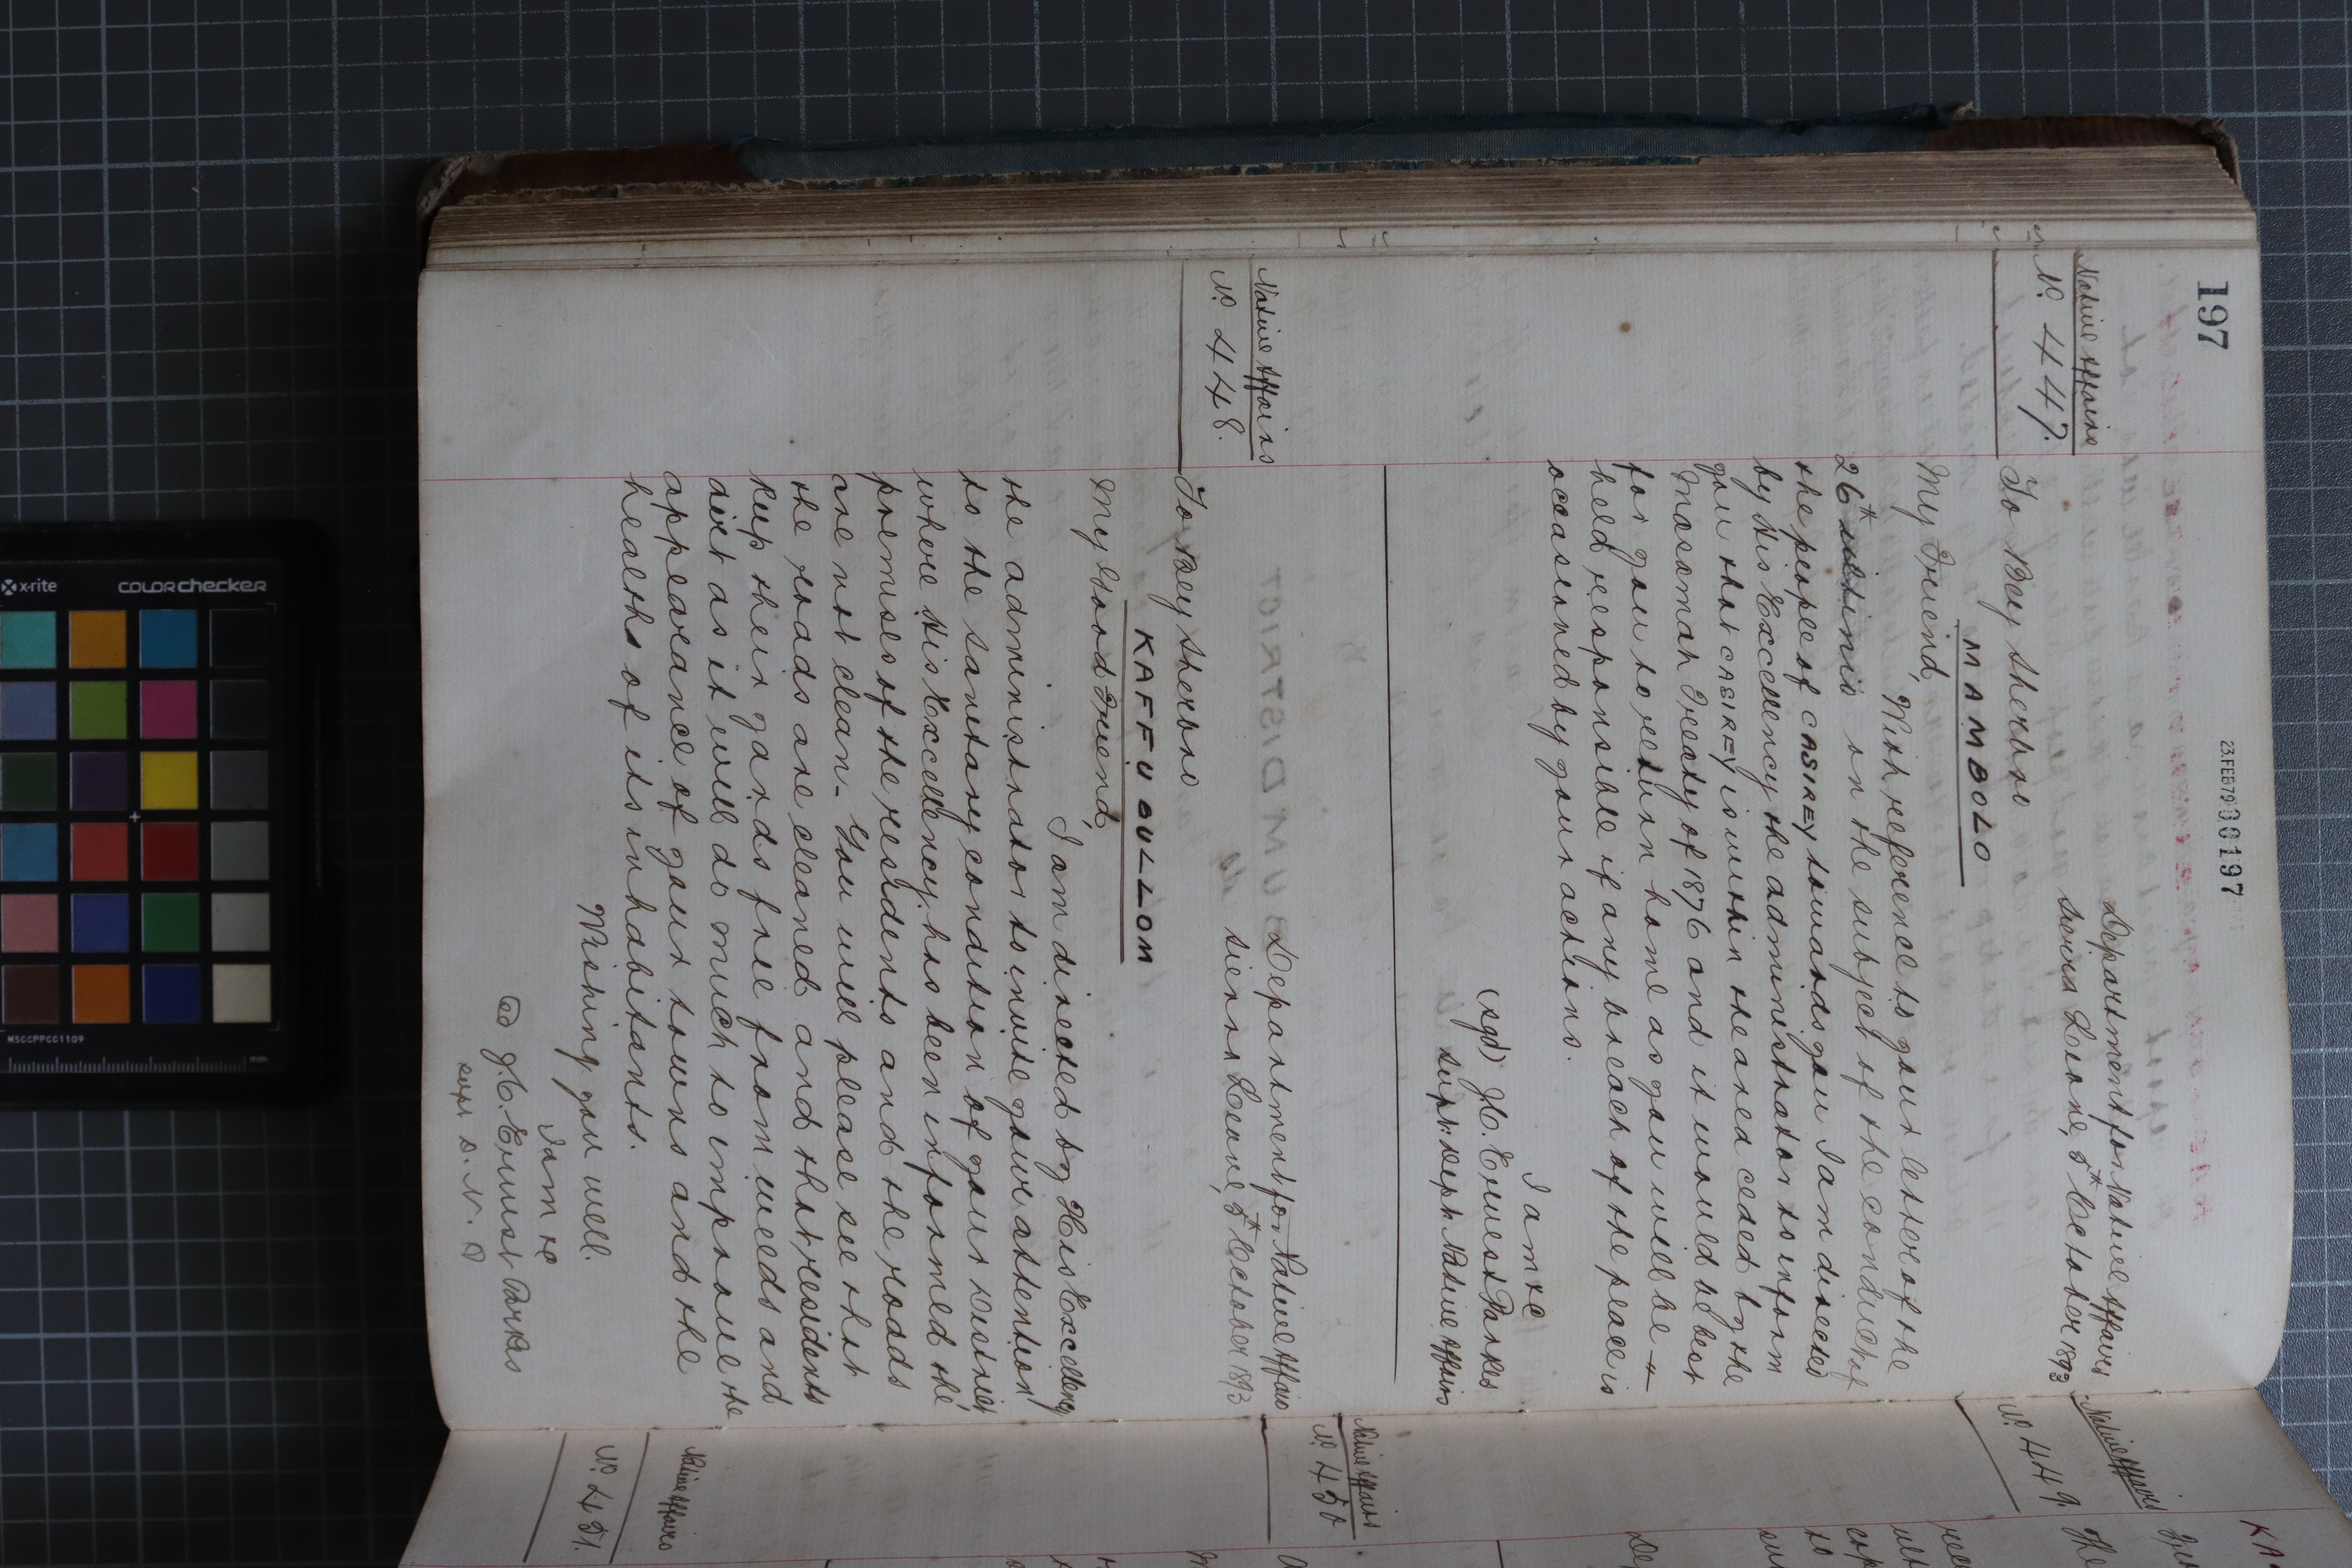 197
23 FEB 79 000197
Native Affairs
No. 447.
Department for Native Affairs
Sierra Leone, 5th October 1893
To Bey Sherbro
MAMBOLO
My Friend,
With reference to your letter of the
26th ultimo on the subject of the conduct of
the people of CASIREY towards you I am directed
by His Excellency the administrator to inform
you that CASIREY is within the area ceded by the
Masamah Treaty of 1876 and it would be best
for you to return home as you will be
held responsible if any breach of the peace is
occasioned by your actions.
I am &c
(sgd) J. C. Ernest Parkes
Supt: Dept: Native Affairs
Native Affairs
No. 448.
Department for Native Affairs
Sierra Leone, 5th October 1893
To Bey Sherbro
KAFFU BULLOM
My Good Friend,
I am directed by His Excellency
the administrator to invite your attention
to the sanitary condition of your District
where His Excellency has been informed the
premises of the residents and the roads
are not clean. You will please see that
the roads are cleaned and that residents
keep their yards free from weeds and
dirt as it will do much to improve the
appearance of your towns and the
healths of its inhabitants.
Wishing you well.
I am &c
J. C. Ernest Parkes
Supt D. N. A
Native Affairs
No. 449.
Native Affairs
No. 450
Native Affairs
No. 451.
x-rite
COLORchecker
MSCCPPCC1109
mm